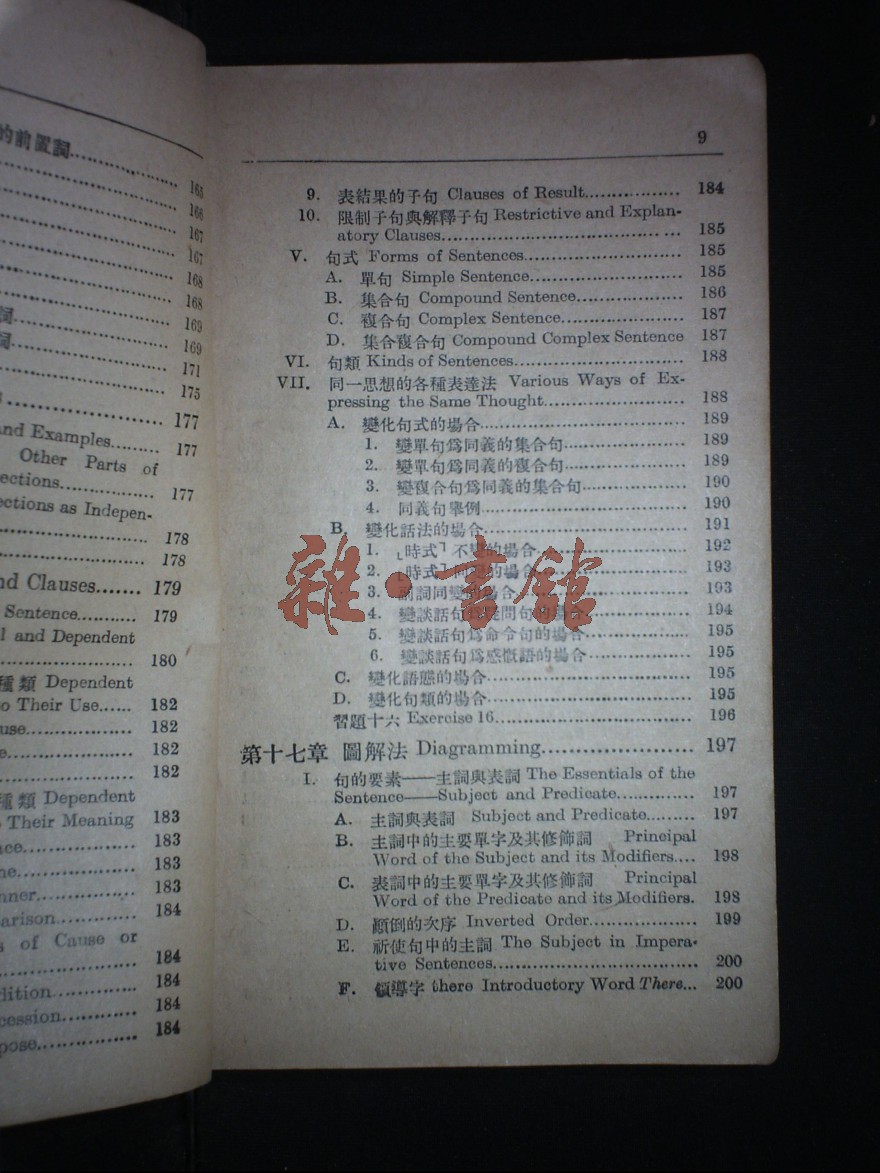 的前置詞
165
166
167
167
168
168
169
169
171
175
177
and Examples 177
Other Parts of
ections 177
ections as Indepen-
178
178
nd Clauses 179
Sentence 179
l and Dependent
180
種類 Dependent
o Their Use 182
use 182
e 182
182
種類 Dependent
o Their Meaning 183
nce 183
ne 183
nner 183
arison 184
s of Cause or
184
dition 184
cession 184
pose 184
9
9. 表結果的子句 Clauses of Result 184
10. 限制子句與解釋子句 Restrictive and Explan-
atory Clauses 185
V. 句式 Forms of Sentences 185
A. 單句 Simple Sentence 185
B. 集合句 Compound Sentence 186
C. 複合句 Complex Sentence 187
D. 集合複合句 Compound Complex Sentence 187
VI. 句類 Kinds of Sentences 188
VII. 同一思想的各種表達法 Various Ways of Ex-
pressing the Same Thought 188
A. 變化句式的場合 189
1. 變單句爲同義的集合句 189
2. 變單句爲同義的複合句 189
3. 變複合句爲同義的集合句 190
4. 同義句舉例 190
B. 變化話法的場合 191
1. 「時式」不變的場合 192
2. 「時式」同變的場合 193
3. 副詞同變的場合 193
4. 變談話句爲疑問句的場合 194
5. 變談話句爲命令句的場合 195
6. 變談話句爲感慨語的場合 195
C. 變化語態的場合 195
D. 變化句類的場合 195
習題十六 Exercise 16 196
第十七章 圖解法 Diagramming 197
I. 句的要素——主詞與表詞 The Essentials of the
Sentence——Subject and Predicate 197
A. 主詞與表詞 Subject and Predicate 197
B. 主詞中的主要單字及其修飾詞 Principal
Word of the Subject and its Modifiers 198
C. 表詞中的主要單字及其修飾詞 Principal
Word of the Predicate and its Modifiers. 198
D. 顚倒的次序 Inverted Order 199
E. 祈使句中的主詞 The Subject in Impera-
tive Sentences 200
F. 領導字 there Introductory Word There 200
雜·書館